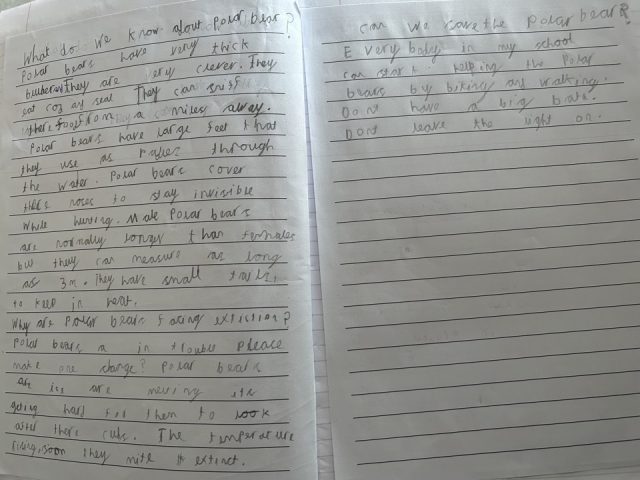 What do we know about Polar bear?
Polar bears have very thick
bluber. They are very clever. They
eat cod and seal They can sniff
there food from a miles away.
Polar bears have large feet that
they use as through
the water. Polar bears cover
there noses to stay invisible
while hunting. Male Polar bears
are normally longer than females
but they can measure as long
as 3m. They have small tails,
to keep in heat.
Why are Polar bears facing extiction?
Polar bears a in trouble Pleace
make one change? Polar bears
are ice are
geting hard for them to look
after there cubs. The temperature
rising, soon they extinct.
can we save the Polar bear?
Every body in my school
can start helping the Polar
bears by biking and walking.
Dont have a big bath.
Dont leave the light on.